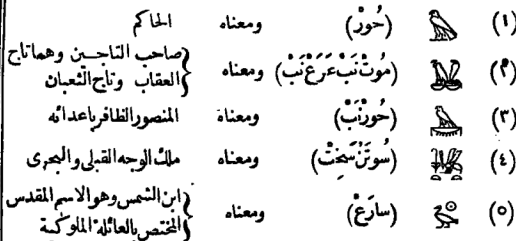 (١) (حُورْ) ومعناه الحاكم
(٢) (مُوتْ نَبْ عَرَعْ نَبْ) ومعناه صاحب التاجين وهما تاج العقاب وتاج الثعبان
(٣) (حُورْنَبْ) ومعناه المنصور الظافر باعدائه
(٤) (سُوتَنْ سَخِتْ) ومعناه ملك الوجه القبلى والبحرى
(٥) (سارَعْ) ومعناه ابن الشمس وهو الاسم المقدس المختص بالعائلة الملوكية